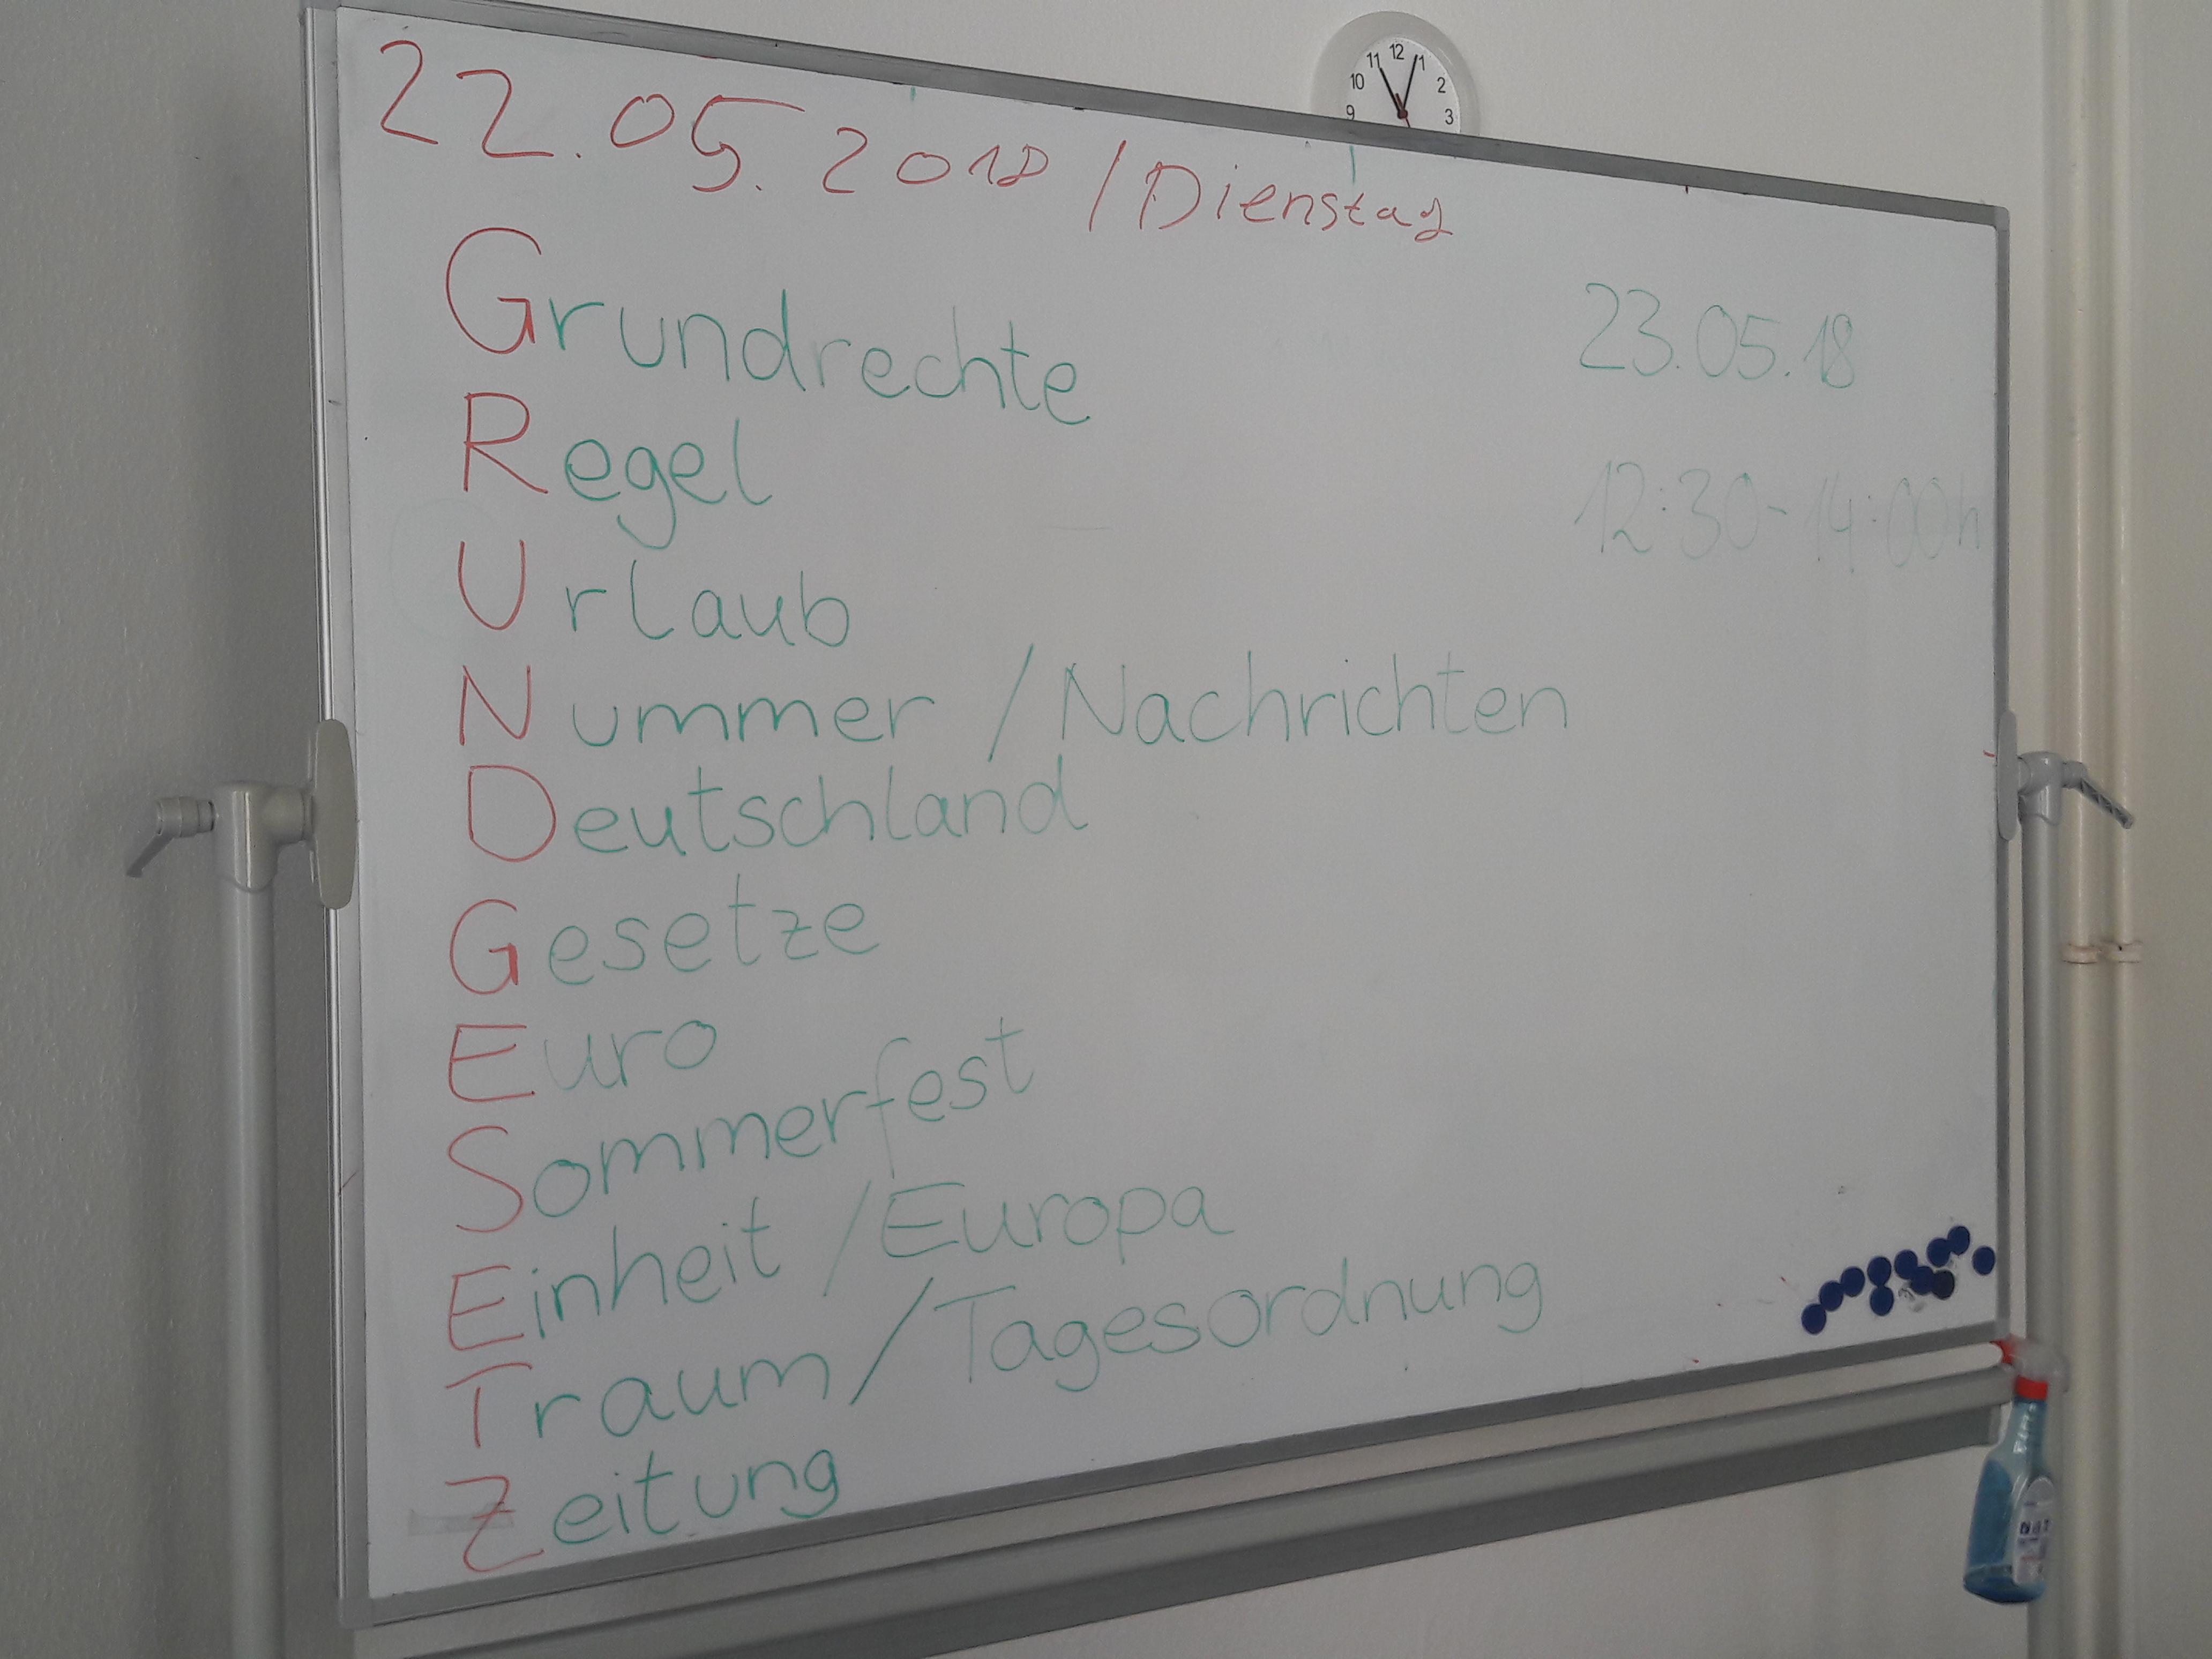 12
11
1
10
2
9
3
22.05.2018 / Dienstag
Grundrechte
23.05.18
Regel
12:30-14:00h
Urlaub
Nummer / Nachrichten
Deutschland
Gesetze
Euro
Sommerfest
Einheit / Europa
Traum / Tagesordnung
Zeitung